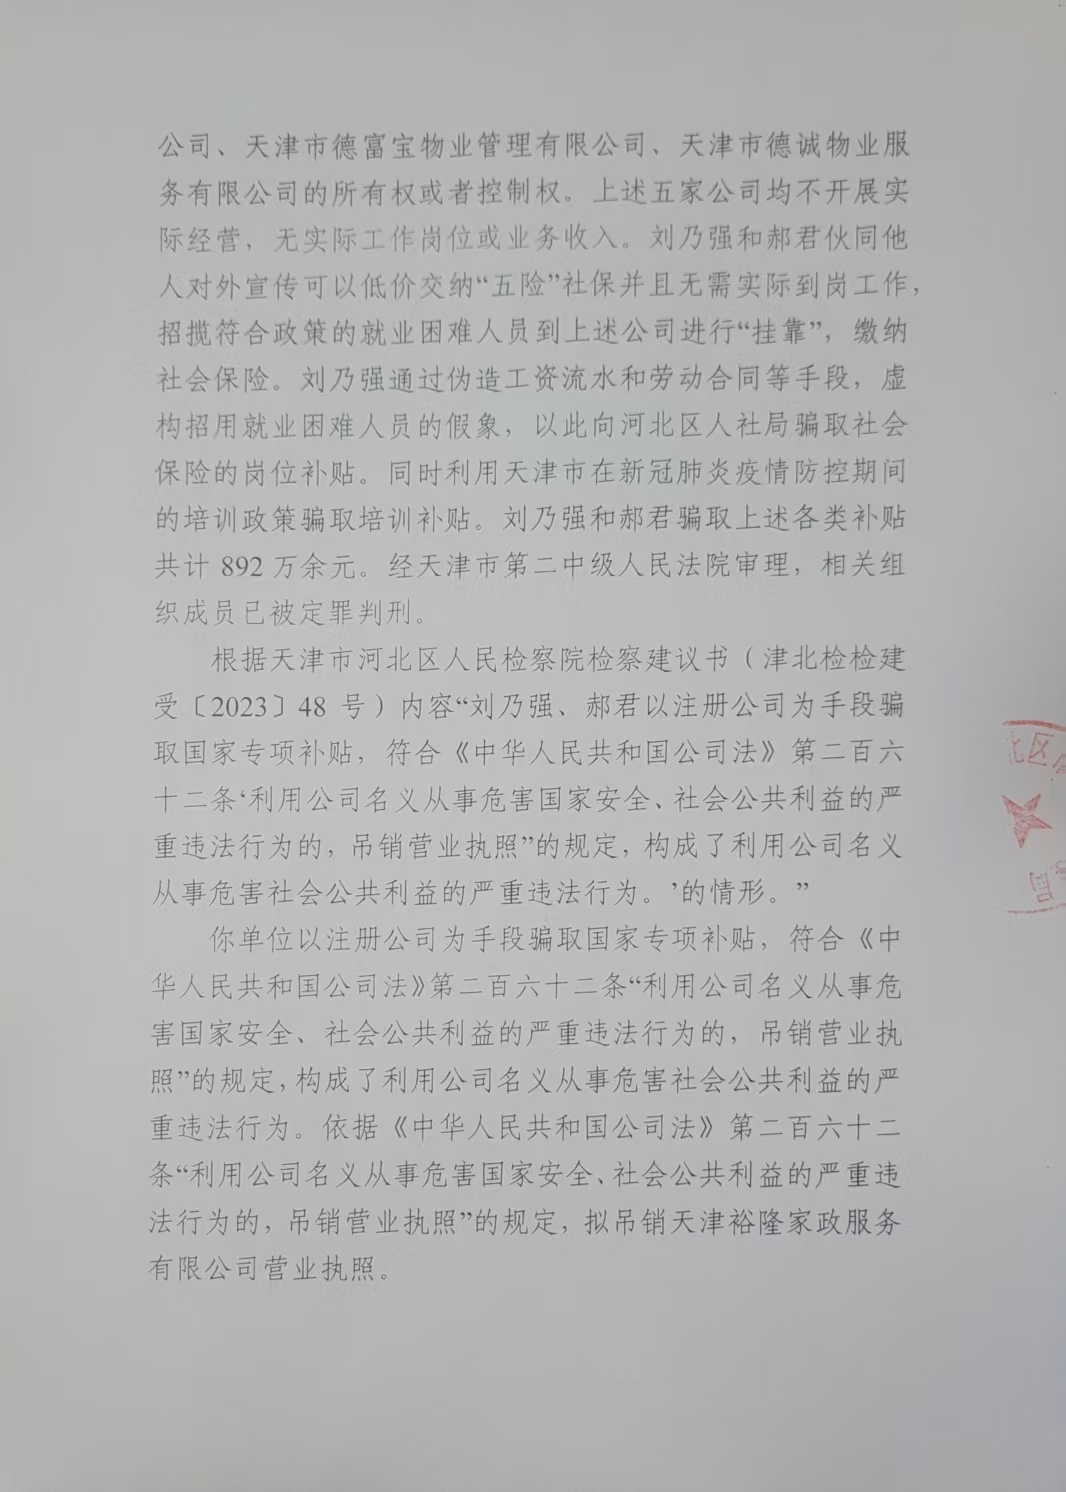 公司、天津市德富宝物业管理有限公司、天津市德诚物业服
务有限公司的所有权或者控制权。上述五家公司均不开展实
际经营，无实际工作岗位或业务收入。刘乃强和郝君伙同他
人对外宣传可以低价交纳“五险”社保并且无需实际到岗工作，
招揽符合政策的就业困难人员到上述公司进行“挂靠”，缴纳
社会保险。刘乃强通过伪造工资流水和劳动合同等手段，虚
构招用就业困难人员的假象，以此向河北区人社局骗取社会
保险的岗位补贴。同时利用天津市在新冠肺炎疫情防控期间
的培训政策骗取培训补贴。刘乃强和郝君骗取上述各类补贴
共计 892 万余元。经天津市第二中级人民法院审理，相关组
织成员已被定罪判刑。
根据天津市河北区人民检察院检察建议书（津北检检建
受〔2023〕48 号）内容“刘乃强、郝君以注册公司为手段骗
取国家专项补贴，符合《中华人民共和国公司法》第二百六
十二条‘利用公司名义从事危害国家安全、社会公共利益的严
重违法行为的，吊销营业执照”的规定，构成了利用公司名义
从事危害社会公共利益的严重违法行为。’的情形。”
你单位以注册公司为手段骗取国家专项补贴，符合《中
华人民共和国公司法》第二百六十二条“利用公司名义从事危
害国家安全、社会公共利益的严重违法行为的，吊销营业执
照”的规定，构成了利用公司名义从事危害社会公共利益的严
重违法行为。依据《中华人民共和国公司法》第二百六十二
条“利用公司名义从事危害国家安全、社会公共利益的严重违
法行为的，吊销营业执照”的规定，拟吊销天津裕隆家政服务
有限公司营业执照。
北区
局